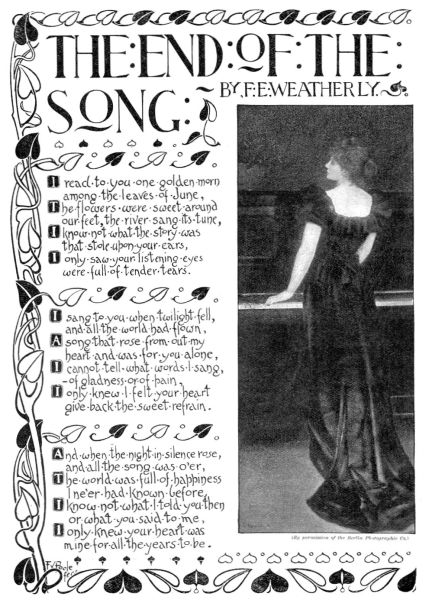 THE:END:OF:THE:
SONG:
~BY.F.E.WEATHERLY.
I read to you one golden morn
among the leaves of June,
The flowers were sweet around
our feet, the river sang its tune,
I know not what the story was
that stole upon your ears,
I only saw your listening eyes
were full of tender tears.
I sang to you when twilight fell,
and all the world had flown,
A song that rose from out my
heart and was for you alone,
I cannot tell what words I sang,
of gladness or of pain,
I only knew I felt your heart
give back the sweet refrain.
And when the night in silence rose,
and all the song was o'er,
The world was full of happiness
I ne'er had known before,
I know not what I told you then
or what you said to me,
I only knew your heart was
mine for all the years to be.
(By permission of the Berlin Photographic Co.)